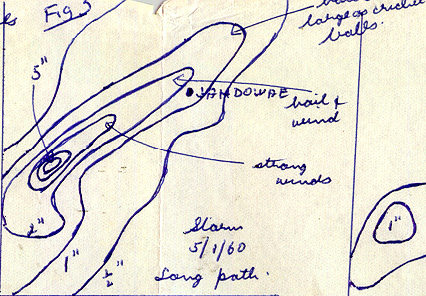 Fig 3
large as cricket
balls.
5"
JANDOWAE
hail &
wind
strong
winds
2"
1"
1/2"
Storm
5/1/60
Long path.
1"